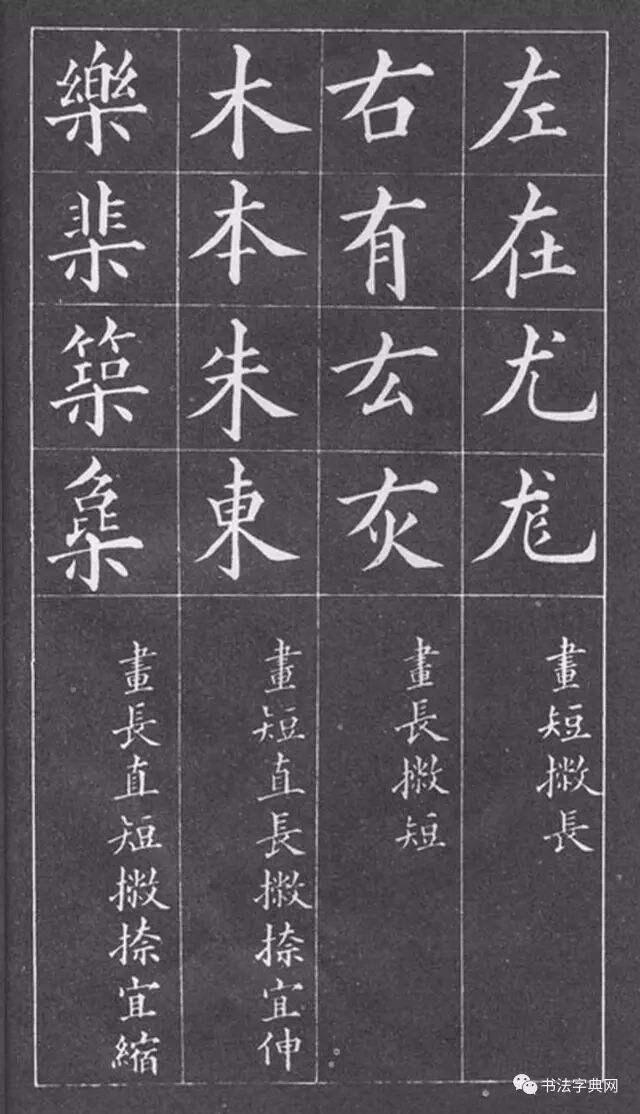 左在尤尨
畫短撇長
右有厷灰
畫長撇短
木本朱東
畫短直長撇捺宜伸
樂棐築
畫長直短撇捺宜縮
书法字典网